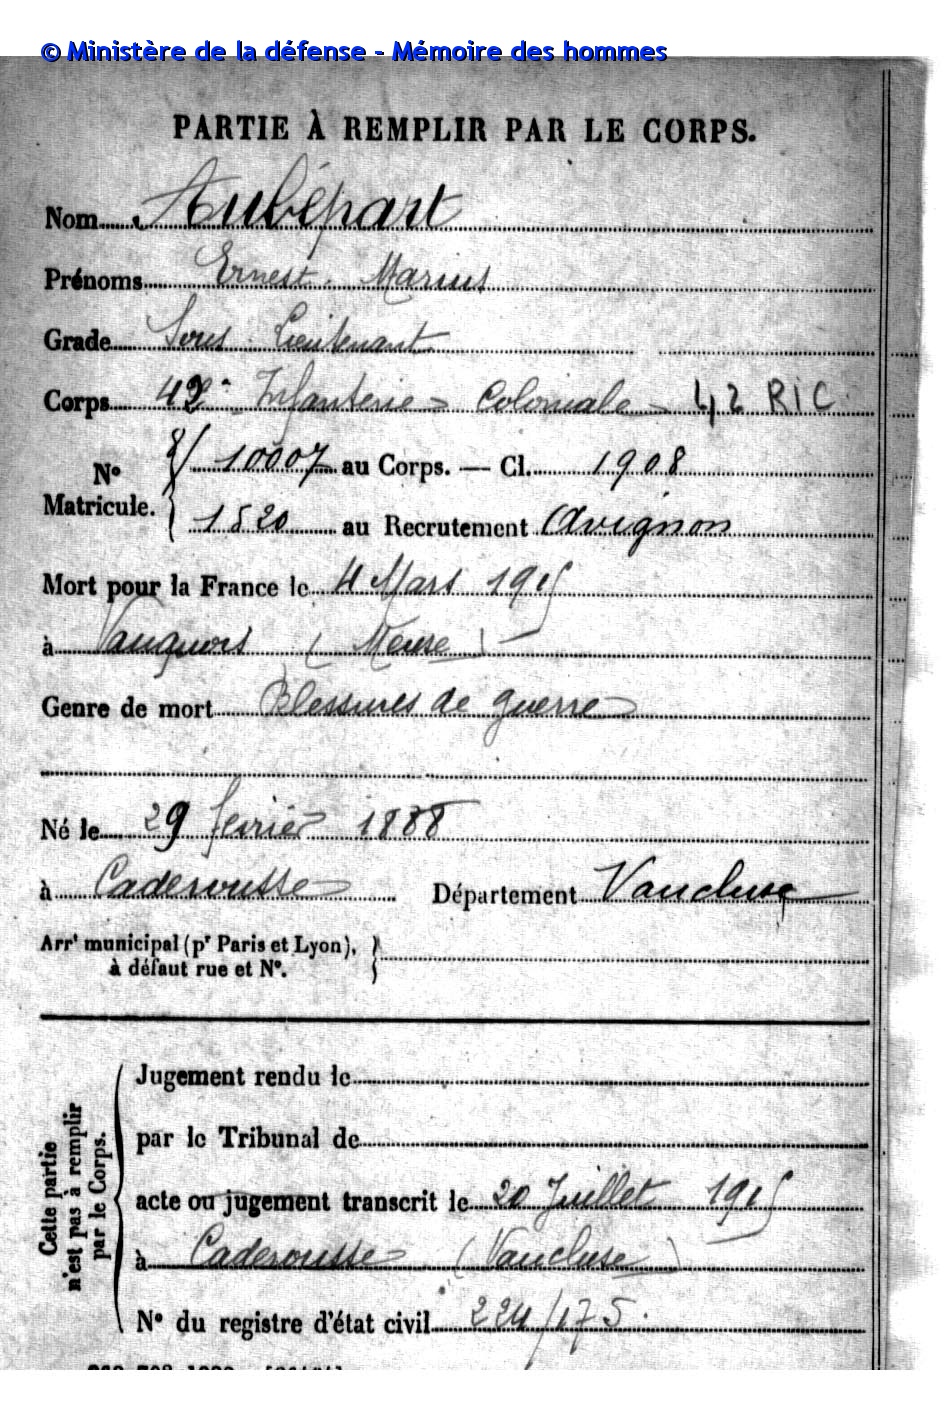 © Ministère de la défense - Mémoire des hommes
PARTIE À REMPLIR PAR LE CORPS.
Nom Aubépart
Prénoms Ernest. Marius
Grade Sous-Lieutenant
Corps 42e Infanterie Coloniale 42 RIC
N° Matricule. 10007 au Corps. — Cl. 1908
1820 au Recrutement Avignon
Mort pour la France le 4 Mars 1915
à Vauquois (Meuse)
Genre de mort Blessures de guerre
Né le 29 février 1888
à Caderousse Département Vaucluse
Arrt municipal (pr Paris et Lyon),
à défaut rue et N°.
Cette partie
n'est pas à remplir
par le Corps.
Jugement rendu le
par le Tribunal de
acte ou jugement transcrit le 20 Juillet 1915
à Caderousse (Vaucluse)
N° du registre d'état civil 224/175.